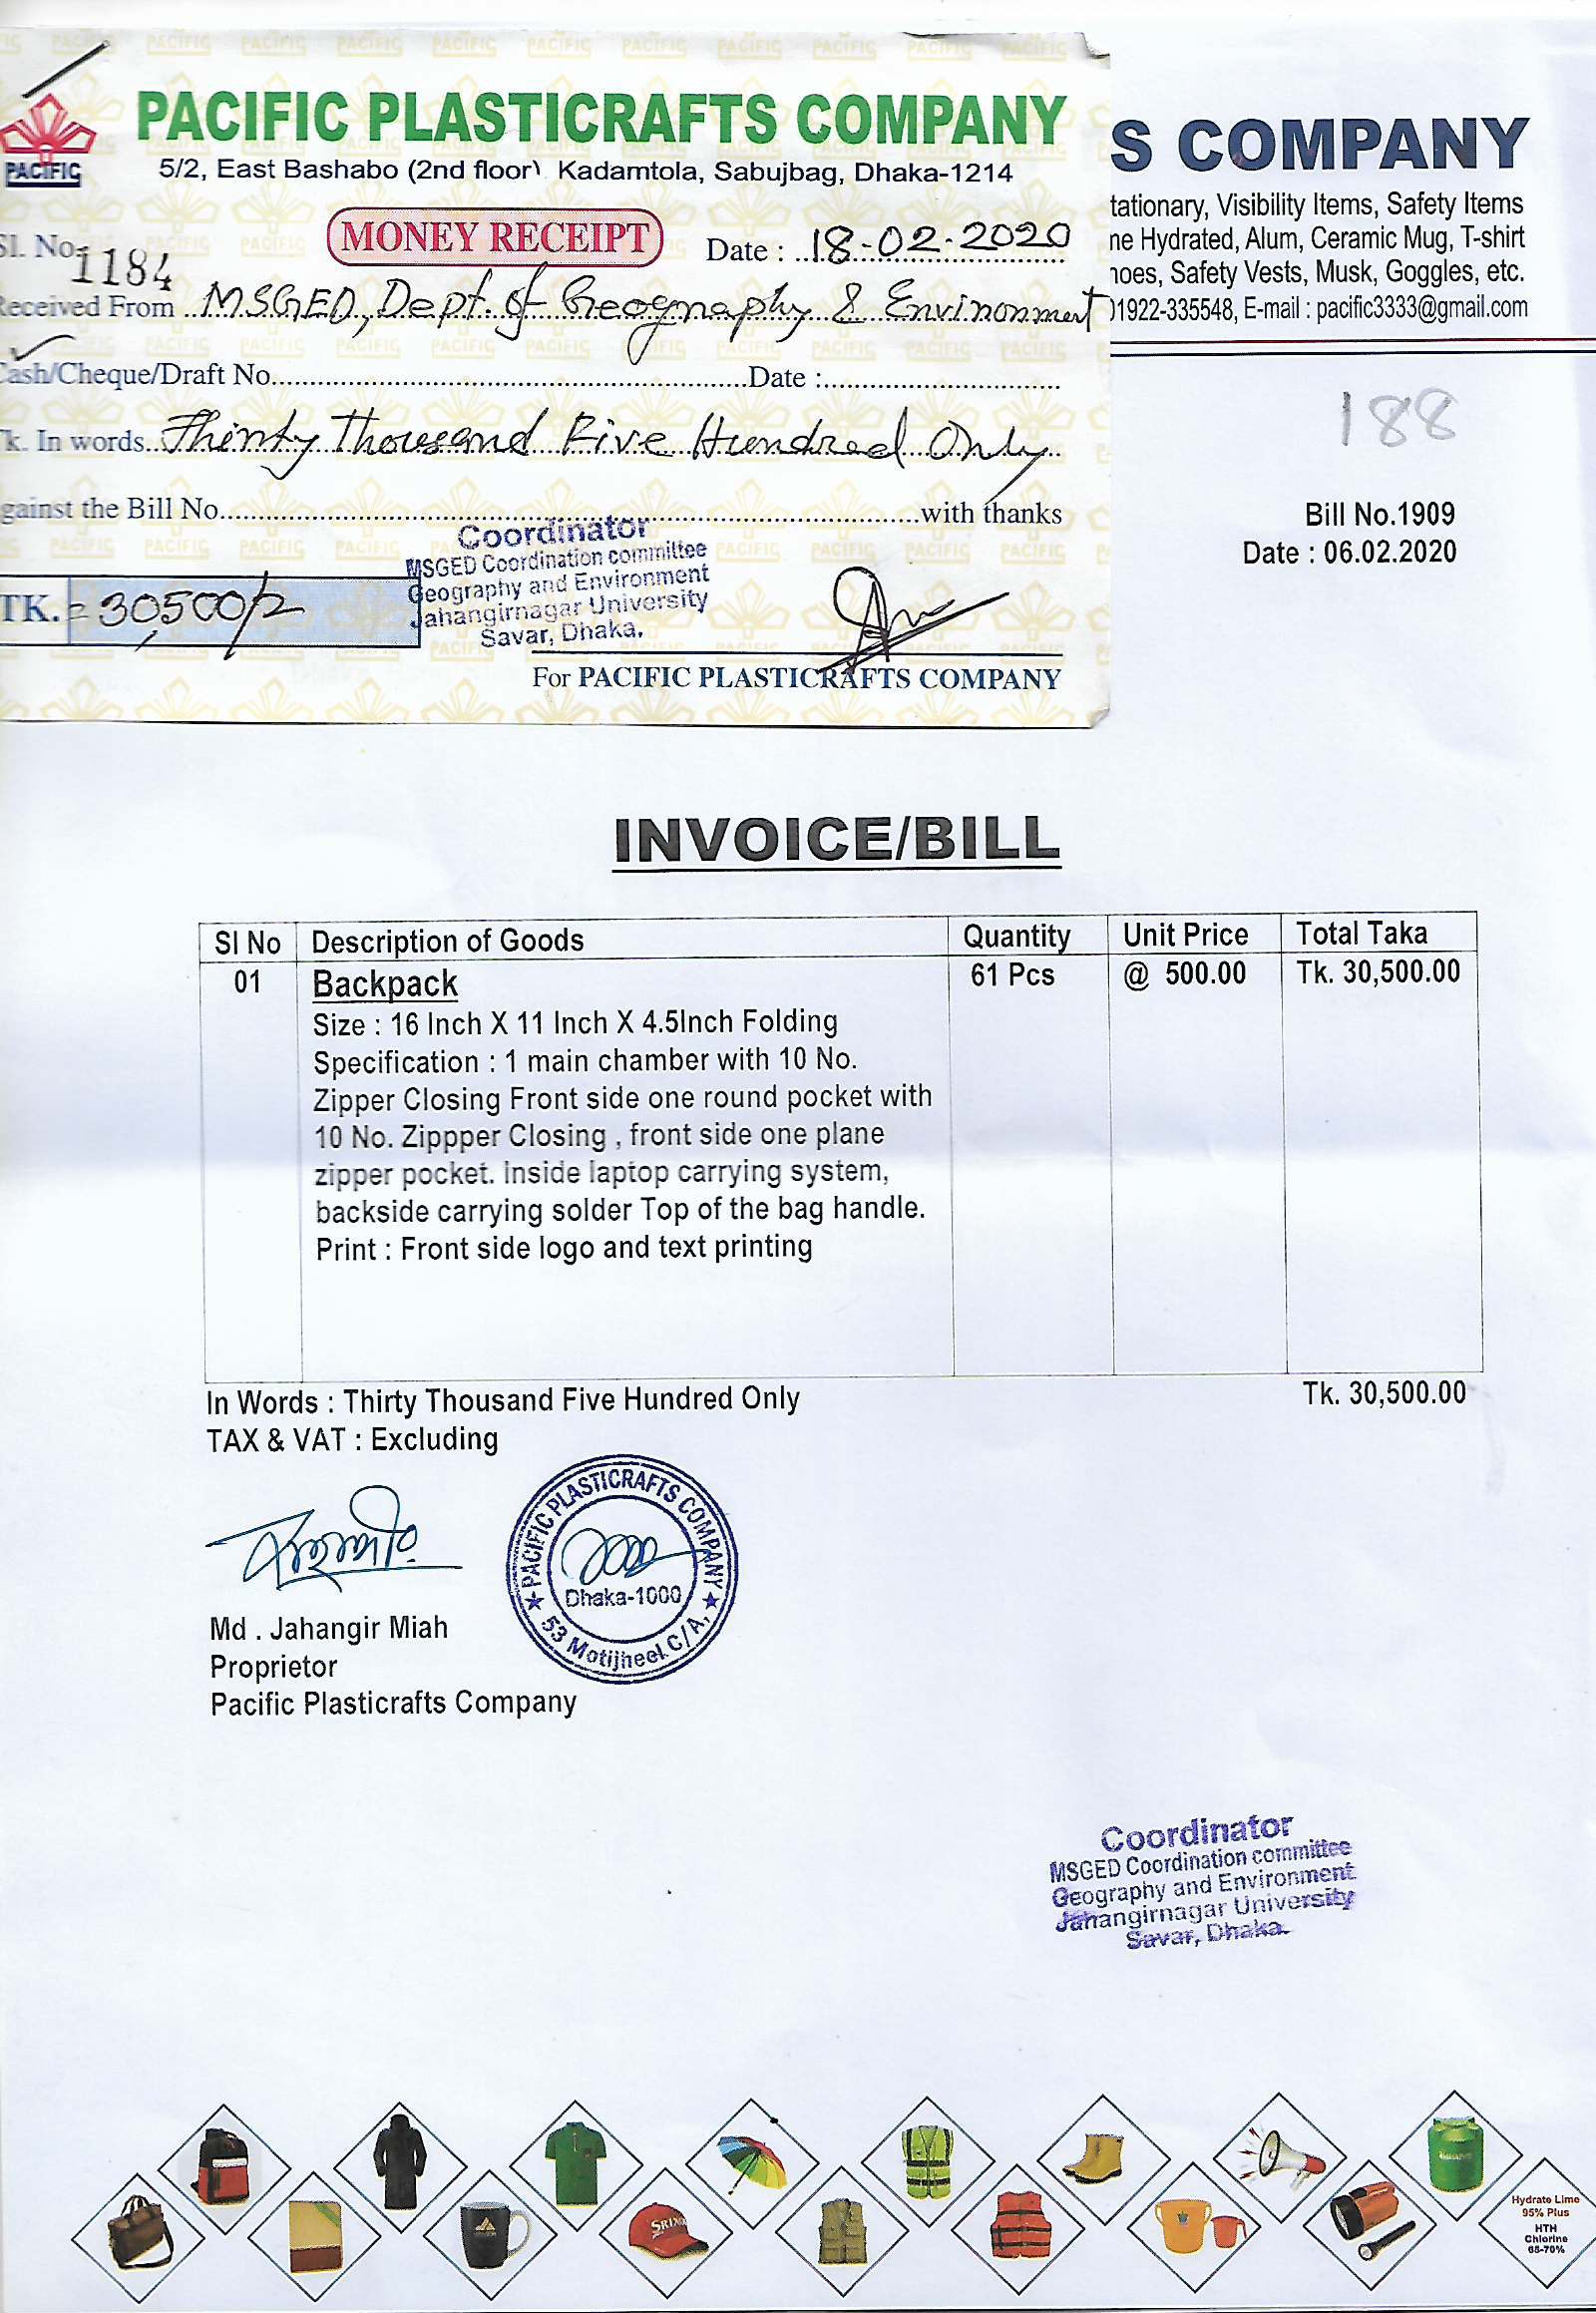 PACIFIC
PACIFIC PLASTICRAFTS COMPANY
5/2, East Bashabo (2nd floor) Kadamtola, Sabujbag, Dhaka-1214
Sl. No. 1184
MONEY RECEIPT
Date : 18-02-2020
Received From MSGED, Dept. of Geography & Environment
Cash/Cheque/Draft No. Date :
Tk. In words Thirty Thousand Five Hundred Only
gainst the Bill No. with thanks
Coordinator
MSGED Coordination committee
Geography and Environment
Jahangirnagar University
Savar, Dhaka.
TK. = 30,500/=
For PACIFIC PLASTICRAFTS COMPANY
S COMPANY
tationary, Visibility Items, Safety Items
ne Hydrated, Alum, Ceramic Mug, T-shirt
hoes, Safety Vests, Musk, Goggles, etc.
01922-335548, E-mail : pacific3333@gmail.com
188
Bill No.1909
Date : 06.02.2020
INVOICE/BILL
Sl No Description of Goods Quantity Unit Price Total Taka
01 Backpack 61 Pcs @ 500.00 Tk. 30,500.00
Size : 16 Inch X 11 Inch X 4.5Inch Folding
Specification : 1 main chamber with 10 No.
Zipper Closing Front side one round pocket with
10 No. Zippper Closing , front side one plane
zipper pocket. Inside laptop carrying system,
backside carrying solder Top of the bag handle.
Print : Front side logo and text printing
In Words : Thirty Thousand Five Hundred Only Tk. 30,500.00
TAX & VAT : Excluding
PACIFIC PLASTICRAFTS COMPANY
Dhaka-1000
53 Motijheel C/A,
Md . Jahangir Miah
Proprietor
Pacific Plasticrafts Company
Coordinator
MSGED Coordination committee
Geography and Environment
Jahangirnagar University
Savar, Dhaka.
Hydrate Lime
95% Plus
HTH
Chlorine
65-70%